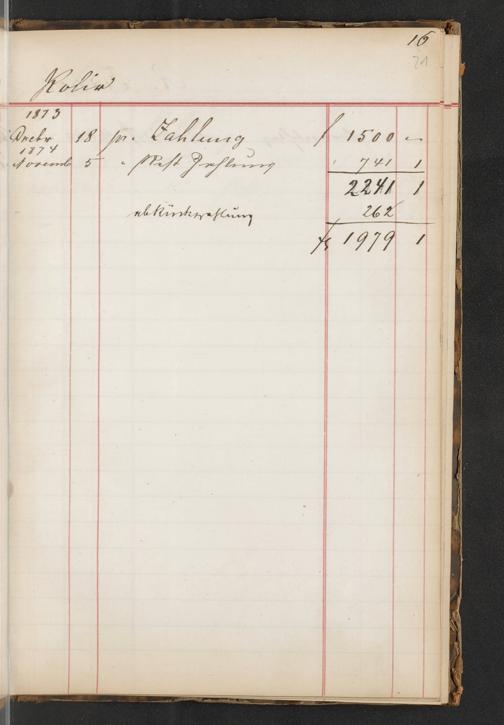 16
21
Kolin
1873
Decbr 18 pr. Zahlung f 1500 —
1874
Novemb 5 " Rest Zahlung " 741 1
2241 1
ab Rückzahlung 262
f 1979 1